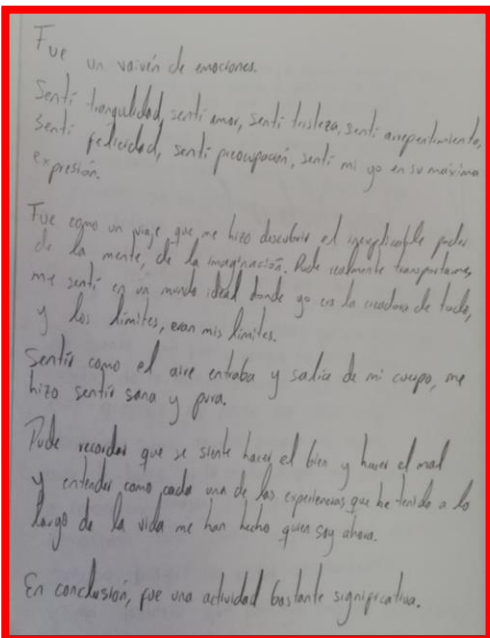 Fue un vaivén de emociones.
Sentí tranquilidad, sentí amor, sentí tristeza, sentí arrepentimiento,
sentí felicidad, sentí preocupación, sentí mi yo en su máxima
expresión.
Fue como un viaje que me hizo descubrir el inexplicable poder
de la mente, de la imaginación. Pude realmente transportarme,
me sentí en un mundo ideal donde yo era la creadora de todo,
y los límites, eran mis límites.
Sentir como el aire entraba y salía de mi cuerpo, me
hizo sentir sana y pura.
Pude recordar que se siente hacer el bien y hacer el mal
y entender como cada una de las experiencias que he tenido a lo
largo de la vida me han hecho quien soy ahora.
En conclusión, fue una actividad bastante significativa.